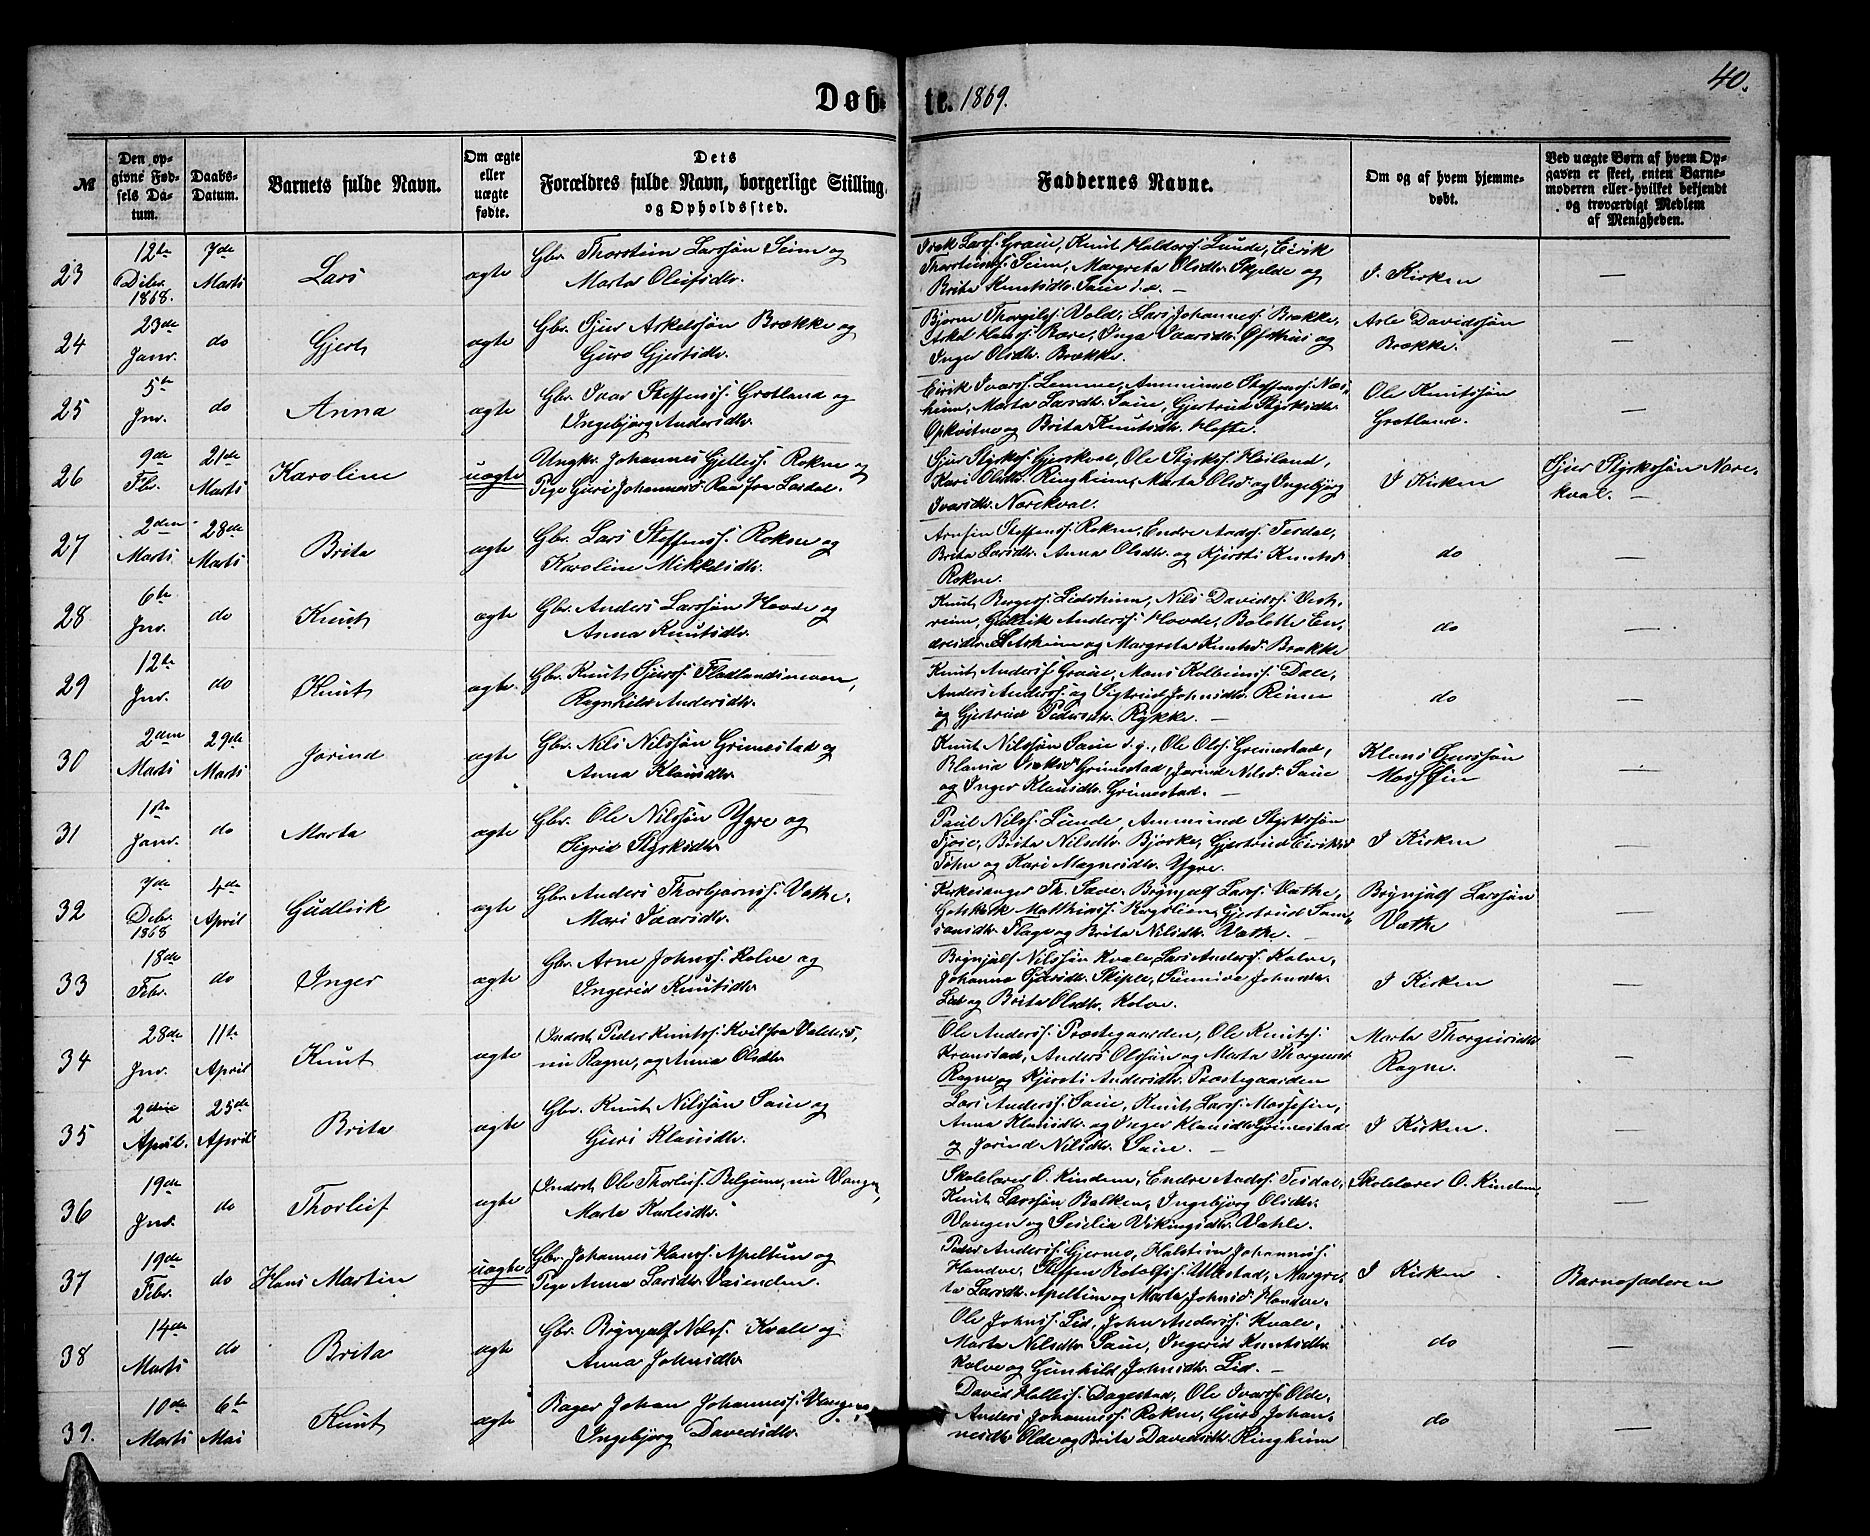 40.
Døbte. 1869.
№
Den op-
givne Fød-
sels Da-
tum.
Daabs-
Datum.
Barnets fulde Navn.
Om ægte
eller
uægte
fødte.
Dets
Forældres fulde Navn, borgerlige Stilling,
og Opholdssted.
Faddernes Navne.
Om og af hvem hjemme-
døbt.
Ved uægte Børn af hvem Op-
gaven er skeet, enten Barne-
moderen eller hvilket bekjendt
og troværdigt Medlem
af Menigheden.
23
12te
Dcbr.
1868.
7de
Marts
Lars
ægte
Gbr. Thorstein Larssøn Seim og
Marta Oleifsdtr.
Isak Larss. Graue, Knut Halders. Lunde, Eirik
Thorsteinss. Seim, Margreta Olsdtr. Skjelde og
Brita Knutsdtr. Saue s.a. —
I Kirken
—
24
23de
Janr.
do
Gjert
ægte
Gbr. Sjur Askelssøn Brække og
Guro Gjertsdtr.
Bjørn Thorgils. Vold, Lars Johanness. Brække,
Askel Hanss. Røre, Inga Ivarsdtr. Øfsthus og
Inger Olsdtr. Brække.
Asle Davidssøn
Brække.
—
25
5te
Jnr.
do
Anna
ægte
Gbr. Ivar Steffenss. Grotland og
Ingebjørg Andersdtr.
Eirik Ivarss. Lemme, Ammund Steffenss. Næs-
heim, Marta Larsdtr. Saue, Gjertrud Styrksdtr.
Opkvitne og Brita Knutsdtr. Hefte.
Ole Knutssøn
Grotland.
—
26
9de
Fbr.
21de
Marts
Karoline
uægte
Ungkr. Johannes Gjelless. Rokne og
Pige Guri Johannesd. Rau fra Lærdal.
Sjur Styrkss. Gjerskval, Ole Styrkss. Heiland,
Kari Olsdtr. Ringheim, Marta Olsd. og Ingebjørg
Ivarsdtr. Norekval.
I Kirken
Sjur Styrkssøn Nore-
kval. —
27
2den
Marts
28de
Marts
Brita
ægte
Gbr. Lars Steffenss. Rokne og
Karoline Mikkelsdtr.
Arnfin Steffenss. Rokne, Endre Anders. Tesdal,
Brita Larsdtr. Anna Olsdtr. og Kjersti Knutsd.
Rokne.
do
—
28
6te
Jnr.
do
Knut
ægte
Gbr. Anders Larssøn Hovde og
Anna Knutsdtr.
Knut Børgess. Lidsheim, Nils Davidss. Vest-
reim, Gullik Anderss. Hovde, Bolette En-
dresdtr. Setsheim og Margreta Knutsd. Brække
do
—
29
12te
Jnr.
do
Knut
ægte.
Gbr. Knut Sjurss. Flatlandsmoen,
Ragnhild Andersdtr.
Knut Anderss. Graue, Mons Kolbeinss. Dale,
Anders Anderss. og Sigtrud Johnsdtr. Rinne
og Gjertrud Pedersdtr. Rykke. —
do
—
30
2den
Marts
29de
Marts
Jorind
ægte
Gbr. Nils Nilssøn Grimestad og
Anna Klausdtr.
Knut Nilssøn Saue s.g., Ole Olss. Grimestad,
Grimestad, Jorind Nilsd. Saue
og Inger Klausdtr. Grimestad. —
—
31
1ste
Janr.
do
Marta
ægte
Gbr. Ole Nilssøn Ygre og
Sigrid Styrksdtr.
Paul Nilss. Lunde, Ammund Styrkssøn
Tjoie, Brita Nilsdtr. Bjørke, Gjertrud Eiriksd.
Tøhn og Kari Magnesdtr. Ygre.
I Kirken
—
32
7de
Debr.
1868
4de
April
Gudleik
ægte
Gbr. Anders Thorbjørnss. Væthe.
Mari Ivarsdtr.
Kirkesanger Th. Save, Brynjulf Larss. Væthe,
Gotskalk Matthiass. Gjertrud Sam-
sonsdtr. Flage og Brita Nilsdtr. Væthe. —
Brynjulf Larssøn
Væthe
—
33
18de
Febr.
do
Inger
ægte
Gbr. Arne Johnss. Kolve og
Ingerid Knutsdtr.
Brynjulf Nilssøn Kvale, Lars Anderss. Kolve,
Johanna Sjursdtr. Skiple, Sunniva Johnsdtr.
Lid og Brita Olsdtr. Kolve.
I Kirken
—
34
28de
Jnr.
11te
April
Knut
ægte
Inderst Peder Knutss. Kvil fra Valders,
nu Rogne, og Anna Olsdtr.
Ole Anderss. Præstegaarden, Ole Knutss.
Kronstad, Anders Olssøn og Marta Thorgeirsd.
Rogne og Kjersti Andersdtr. Præstegaarden
Marta Thorgeirsdtr.
Rogne.
—
35
2den
April.
25de
April
Brita
ægte
Gbr. Knut Nilssøn Saue og
Gjuri Klausdtr.
Lars Anderss. Saue, Knut Larss. Mossefin,
Anna Klausdtr. og Inger Klausdtr. Grimestad
og Jorind Nilsdtr. Saue. —
I Kirken.
—
36
19de
Jnr.
do
Thorleif
ægte
Inderst Ole Thorleifs. Belgum, nu Vangen,
Marta Karlsdtr.
Skolelærer O. Kindem, Endre Anders. Tesdal,
Knut Larssøn Bakken, Ingebjørg Olsdtr.
Vangen og Sesilia Vikingsdtr. Væhle.
Skolelærer O. Kindem,
—
37
19de
Febr.
do
Hans Martin
uægte
Gbr. Johannes Hanss. Apeltun og
Pige Anna Larsdtr. Vasenden.
Peder Anderss. Gjernes, Halstein Johanness.
Handve, Steffen Botolfss. Ullestad, Margre-
ta Larsdtr. Apeltun og Marta Johnsd. Handve.
I Kirken
Barnefaderen
38
14de
Marts
do
Brita
ægte
Gbr. Brynjulf Nilss. Kvale og
Anna Johnsdtr.
Ole Johnss. Lid, John Anderss. Kvale,
Marta Nilsdtr. Saue, Ingerid Knutsdtr.
Kolve og Gunhild Johnsdtr. Lid. —
do
—
39.
10de
Marts
6te
Mai
Knut
ægte
Bager Johan Johanness. Vangen,
Ingebjørg Davidsdtr.
David Helless. Dagestad, Ole Ivarss. Olde,
Anders Johanness. Rokne, Guro Johan-
nesdtr. Olde og Brita Davidsdtr. Ringheim
do
—